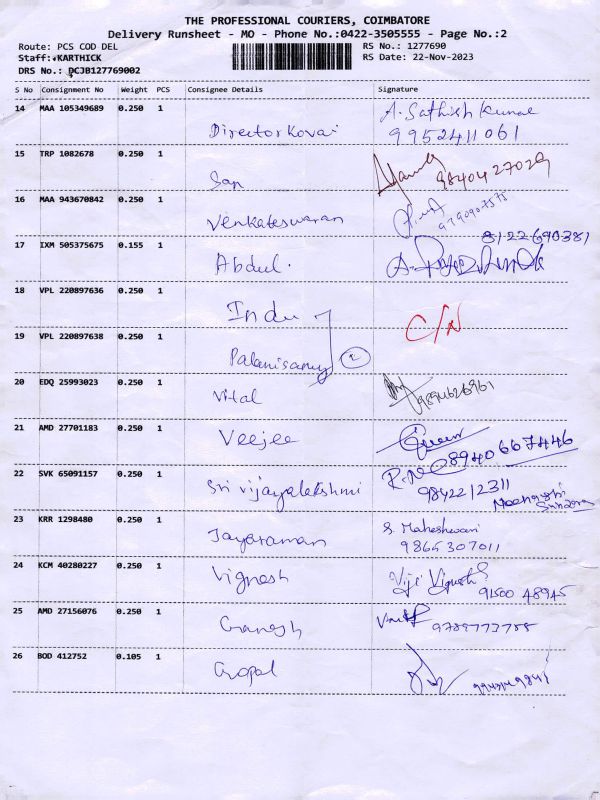 THE PROFESSIONAL COURIERS, COIMBATORE
Delivery Runsheet - MO - Phone No.:0422-3505555 - Page No.:2
Route: PCS COD DEL
RS No.: 1277690
Staff: KARTHICK
RS Date: 22-Nov-2023
DRS No.: DCJB127769002
S No Consignment No Weight PCS Consignee Details Signature
14 MAA 105349689 0.250 1
A. Sathish Kumar
Director Kovai
9952411061
15 TRP 1082678 0.250 1
San
9840427029
16 MAA 943670842 0.250 1
Venkateswaran
8122690381
17 IXM 505375675 0.155 1
Abdul.
18 VPL 220897636 0.250 1
Indu
C/N
19 VPL 220897638 0.250 1
Palanisamy 2
20 EDQ 25993023 0.250 1
Vital
21 AMD 27701183 0.250 1
Veejee
8940667446
22 SVK 65091157 0.250 1
Sri vijayalekshmi
9842212311
23 KRR 1298480 0.250 1
S. Maheshwari
Jayaraman
9865307011
24 KCM 40280227 0.250 1
Vignesh
Viji Vignesh
91500 48945
25 AMD 27156076 0.250 1
Ganesh
26 BOD 412752 0.105 1
Gopal